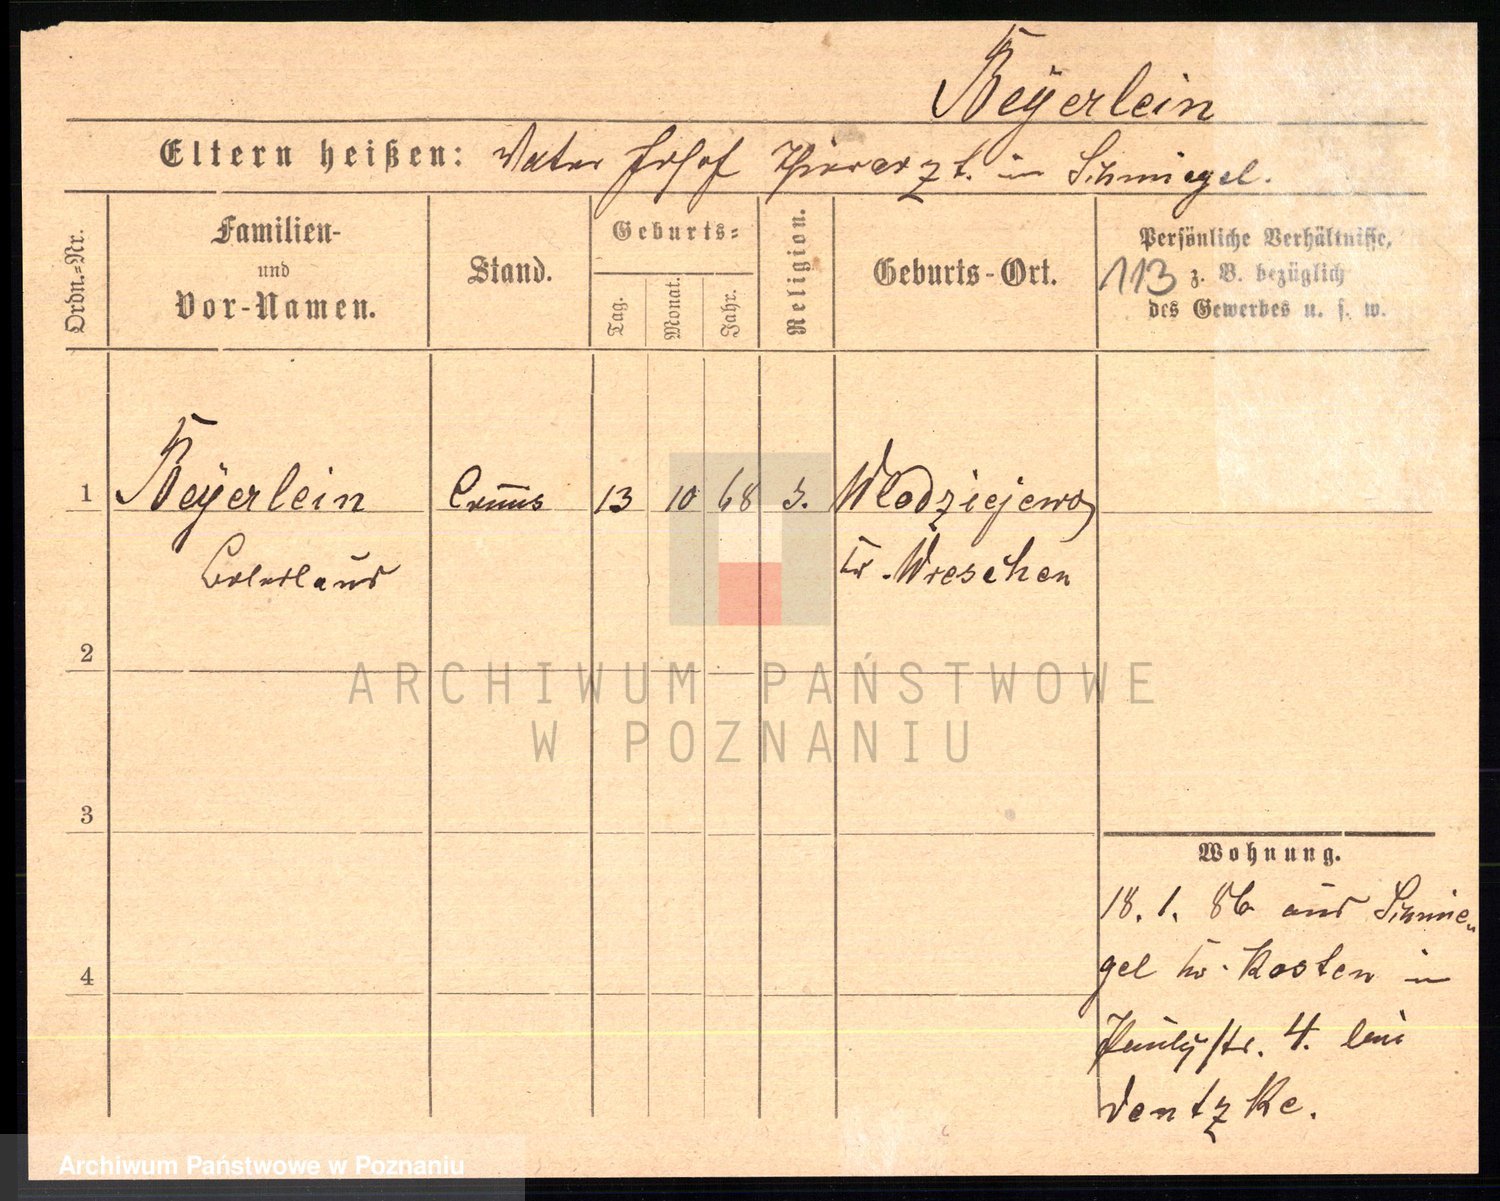 Beÿerlein
Eltern heißen: Vater Josef Thierarzt. in Schmiegel.
Ordn.=Nr.
Familien-
und
Vor-Namen.
Stand.
Geburts=
Tag.
Monat.
Jahr.
Religion.
Geburts-Ort.
Persönliche Verhältnisse,
113 z. B. bezüglich
des Gewerbes u. s. w.
1 Beÿerlein 13 10 68 Wlodziejewo
Kr. Wreschen
2
ARCHIWUM PAŃSTWOWE
W POZNANIU
3
Wohnung.
18. 1. 86 aus Schmie„
gel Kr. Kosten in
4
Paulystr. 4. bei
Dentzke.
Archiwum Państwowe w Poznaniu